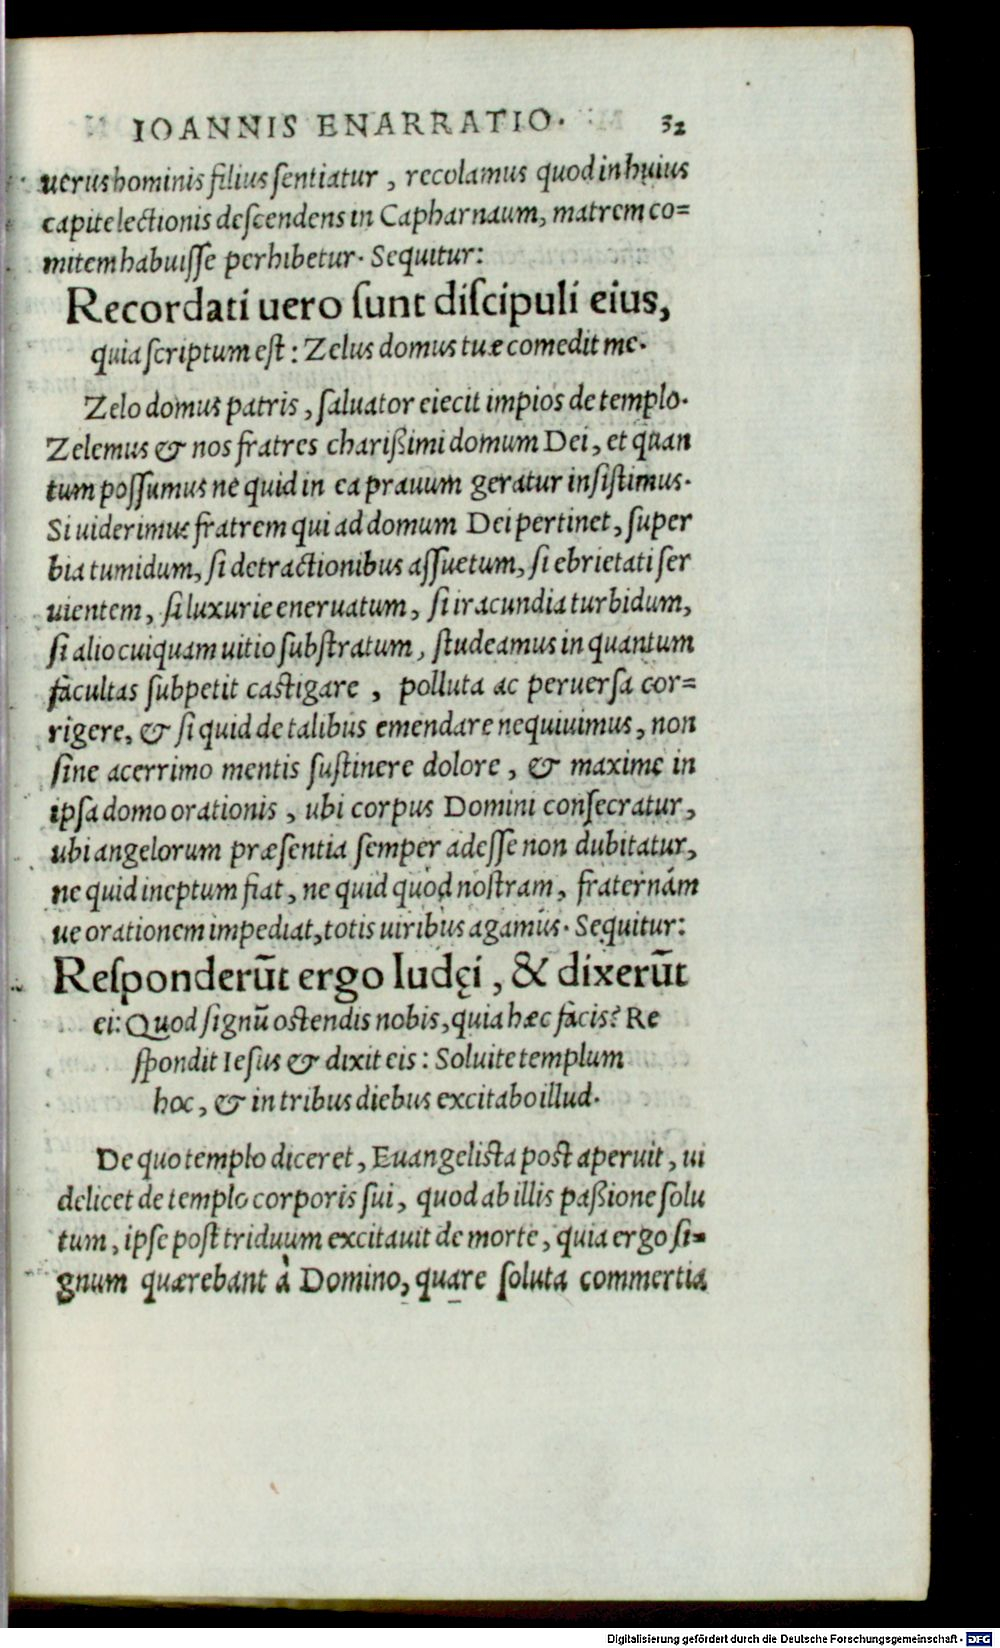 IOANNIS ENARRATIO. 32
uerus hominis filius sentiatur, recolamus quod in huius
capite lectionis descendens in Capharnaum, matrem co=
mitem habuisse perhibetur. Sequitur:
Recordati uero sunt discipuli eius,
quia scriptum est: Zelus domus tuæ comedit me.
Zelo domus patris, saluator eiecit impios de templo.
Zelemus & nos fratres charißimi domum Dei, et quan
tum possumus ne quid in ea prauum geratur insistimus.
Si uiderimus fratrem qui ad domum Dei pertinet, super
bia tumidum, si detractionibus assuetum, si ebrietati ser
uientem, si luxurie eneruatum, si iracundia turbidum,
si alio cuiquam uitio substratum, studeamus in quantum
facultas subpetit castigare, polluta ac peruersa cor=
rigere, & si quid de talibus emendare nequiuimus, non
sine acerrimo mentis sustinere dolore, & maxime in
ipsa domo orationis, ubi corpus Domini consecratur,
ubi angelorum præsentia semper adesse non dubitatur,
ne quid ineptum fiat, ne quid quod nostram, fraternám
ue orationem impediat, totis uiribus agamus. Sequitur:
Responderūt ergo Iudęi, & dixerūt
ei: Quod signū ostendis nobis, quia hæc facis? Re
spondit Iesus & dixit eis: Soluite templum
hoc, & in tribus diebus excitabo illud.
De quo templo diceret, Euangelista post aperuit, ui
delicet de templo corporis sui, quod ab illis paßione solu
tum, ipse post triduum excitauit de morte, quia ergo si=
gnum quærebant à Domino, quare soluta commertia
Digitalisierung gefördert durch die Deutsche Forschungsgemeinschaft - DFG